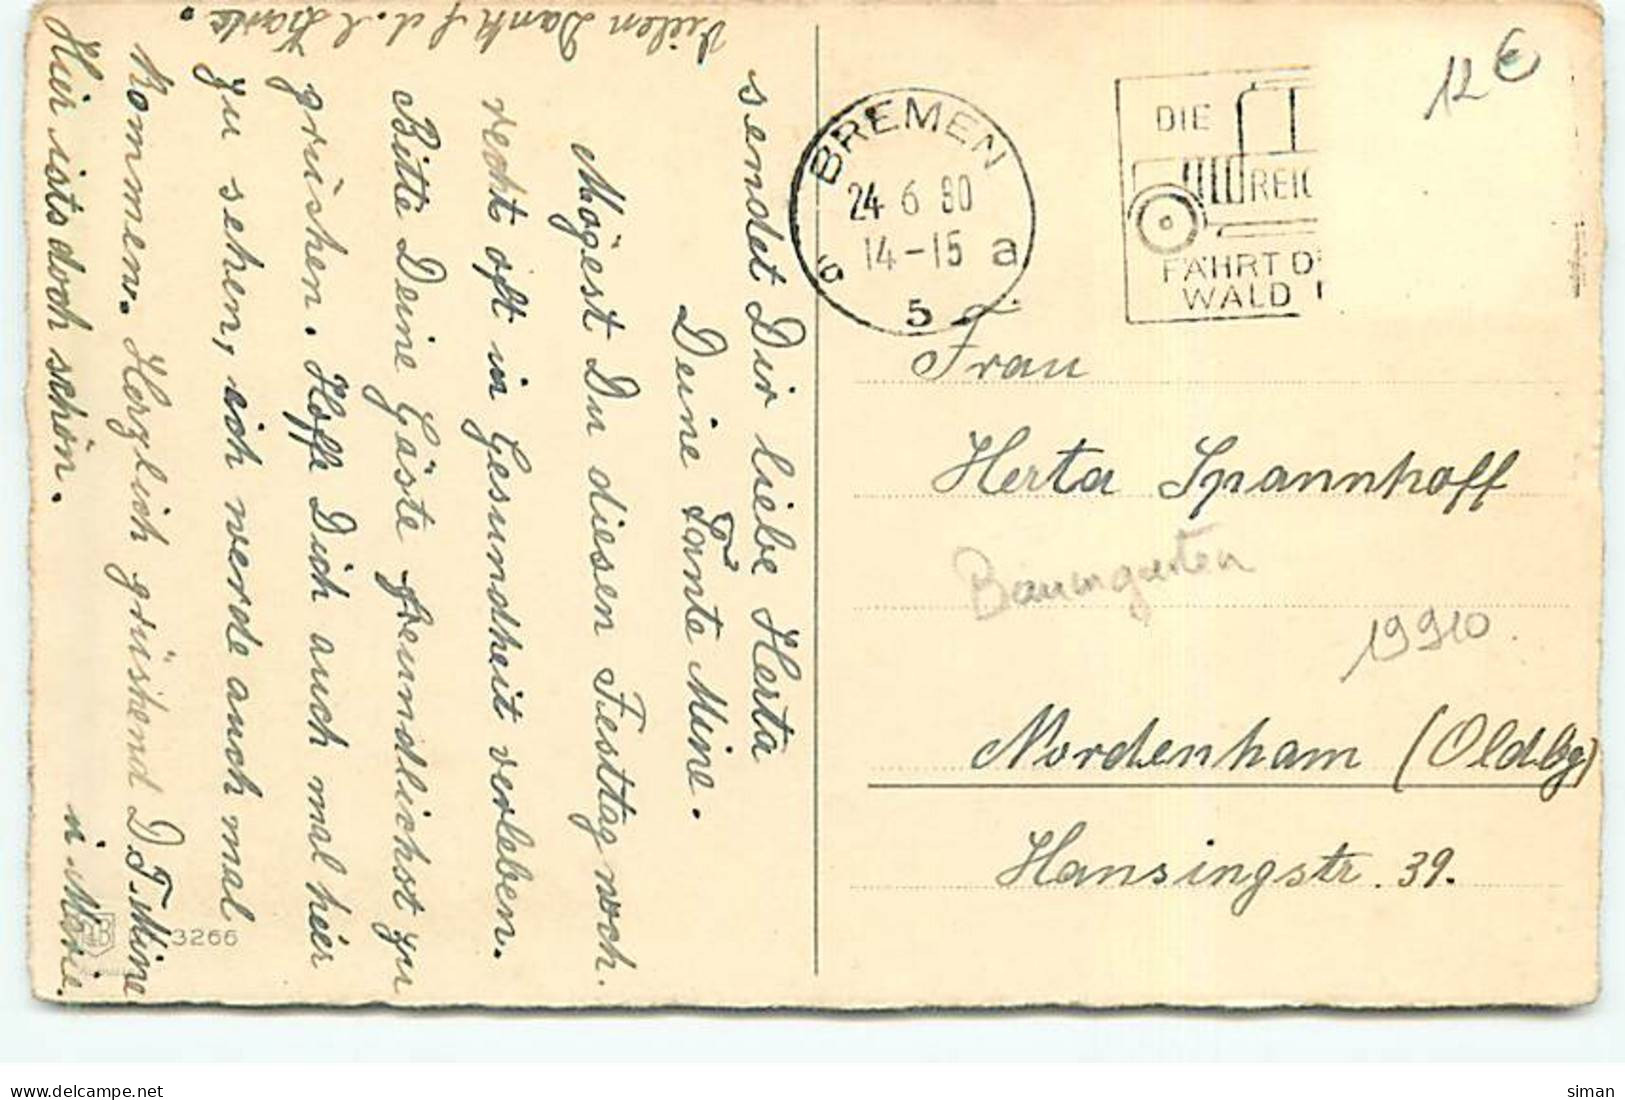 sendet Dir liebe Herta
Deine Tante Mine.
Mögest Du diesen Festtag noch
recht oft in Gesundheit verleben.
Bitte Deine Gäste freundlichst zu
grüshen. Hoffe Dich auch mal hier
zu sehen, ich werde auch mal
kommen. Herzlich grüshend D. T. Mine
Hier ists doch schön.
u Marie.
Vielen Dank f d. l Karte.
BREMEN
24 6 30
14-15
6 a
5
DIE
REIC
FÄHRT D
WALD
12 €
Frau
Herta Spannhoff
Baumgarten
19910
Nordenham (Oldbg)
Hansingstr. 39.
3266
delcampe.net
siman